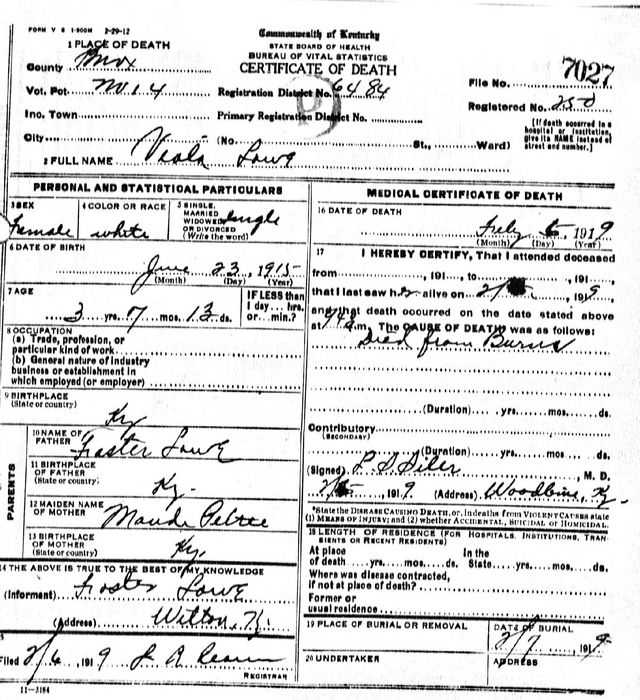 FORM V S 1-500M 2-29-12
Commonwealth of Kentucky
STATE BOARD OF HEALTH
BUREAU OF VITAL STATISTICS
CERTIFICATE OF DEATH
7027
1 PLACE OF DEATH
County Knox
Vot. Pct. No 14
Registration District No. 6484
File No.
Ino. Town
Primary Registration District No.
Registered No. 250
City (No. St., Ward)
[If death occurred in a hospital or institution, give its NAME instead of street and number.]
2 FULL NAME Viola Lowe
PERSONAL AND STATISTICAL PARTICULARS
3 SEX Female
4 COLOR OR RACE white
5 SINGLE, MARRIED WIDOWED OR DIVORCED (Write the word) Single
6 DATE OF BIRTH
June 23, 1915
(Month) (Day) (Year)
7 AGE
3 yrs. 7 mos. 13 ds.
IF LESS than 1 day... hrs. or... min.?
8 OCCUPATION
(a) Trade, profession, or particular kind of work
(b) General nature of industry business or establishment in which employed (or employer)
9 BIRTHPLACE
(State or country)
Ky
PARENTS
10 NAME OF FATHER Foster Lowe
11 BIRTHPLACE OF FATHER (State or country) Ky.
12 MAIDEN NAME OF MOTHER Maude
13 BIRTHPLACE OF MOTHER (State or country) Ky.
14 THE ABOVE IS TRUE TO THE BEST OF MY KNOWLEDGE
(Informent) Foster Lowe
(Address) Wilton, Ky.
Filed 2/6 1919
REGISTRAR
11-3184
MEDICAL CERTIFICATE OF DEATH
16 DATE OF DEATH
Feby 5, 1919
(Month) (Day) (Year)
17 I HEREBY CERTIFY, That I attended deceased
from ......, 191...., to ......, 191....,
that I last saw her alive on 2/5, 1919,
and that death occurred on the date stated above
at m. The CAUSE OF DEATH was as follows:
Died from Burns
(Duration).... yrs..... mos..... ds.
Contributory
(SECONDARY)
(Duration).... yrs..... mos..... ds.
(Signed) P. S. Siler, M. D.
2/5, 1919 (Address) Woodbine, Ky.
*State the DISEASE CAUSING DEATH, or, in deaths from VIOLENT CAUSES state
(1) MEANS OF INJURY; and (2) whether ACCIDENTAL, SUICIDAL or HOMICIDAL.
18 LENGTH OF RESIDENCE (FOR HOSPITALS, INSTITUTIONS, TRANSIENTS OR RECENT RESIDENTS)
At place of death .... yrs..... mos..... ds. In the State.... yrs..... mos..... ds.
Where was disease contracted, if not at place of death?
Former or usual residence
19 PLACE OF BURIAL OR REMOVAL
DATE OF BURIAL
2/7, 1919
20 UNDERTAKER
ADDRESS